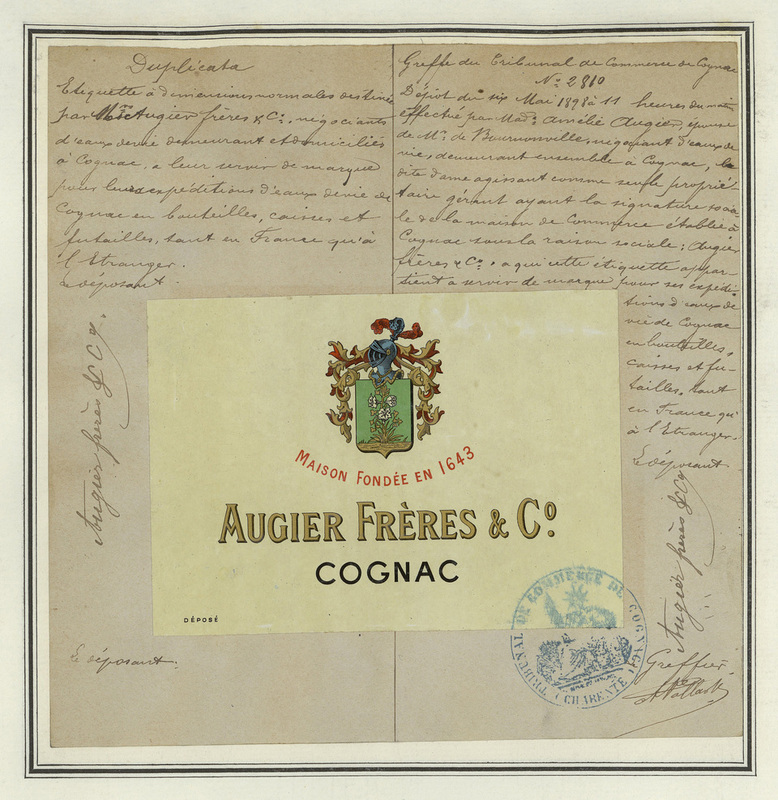 Duplicata
Etiquette à dimensions normales destinée
par Augier frères & Cie, négociants
d'eaux de vie demeurant et domiciliés
à Cognac, a leur servir de marque
pour leurs expéditions d'eaux de vie de
Cognac en bouteilles, caisses et
futailles, tant en France qu'à
l'Etranger.
Le déposant.
Augier frères & Co.
Le déposant.
Greffe du Tribunal de Commerce de Cognac
No 2810
Dépôt du six Mai 1898 à 11 heures du matin
effectué par Made. Amélie Augier, épouse
de Mr. de Bournonville, négociant d'eaux de
vie, demeurant ensemble à Cognac, la
dite dame agissant comme seule proprié-
taire gérant ayant la signature socia-
le de la maison de Commerce établie à
Cognac sous la raison sociale: Augier
frères & Co. a qui cette étiquette appar-
tient a servir de marque pour ses expédi-
tions d'eaux de
vie de Cognac
en bouteilles,
caisses et fu-
tailles, tant
en France qu'
à l'Etranger.
Le déposant
Augier frères & Co
Greffier
MAISON FONDÉE EN 1643
AUGIER FRÈRES & Co.
COGNAC
DÉPOSÉ
TRIBUNAL DE COMMERCE DE COGNAC
(CHARENTE)